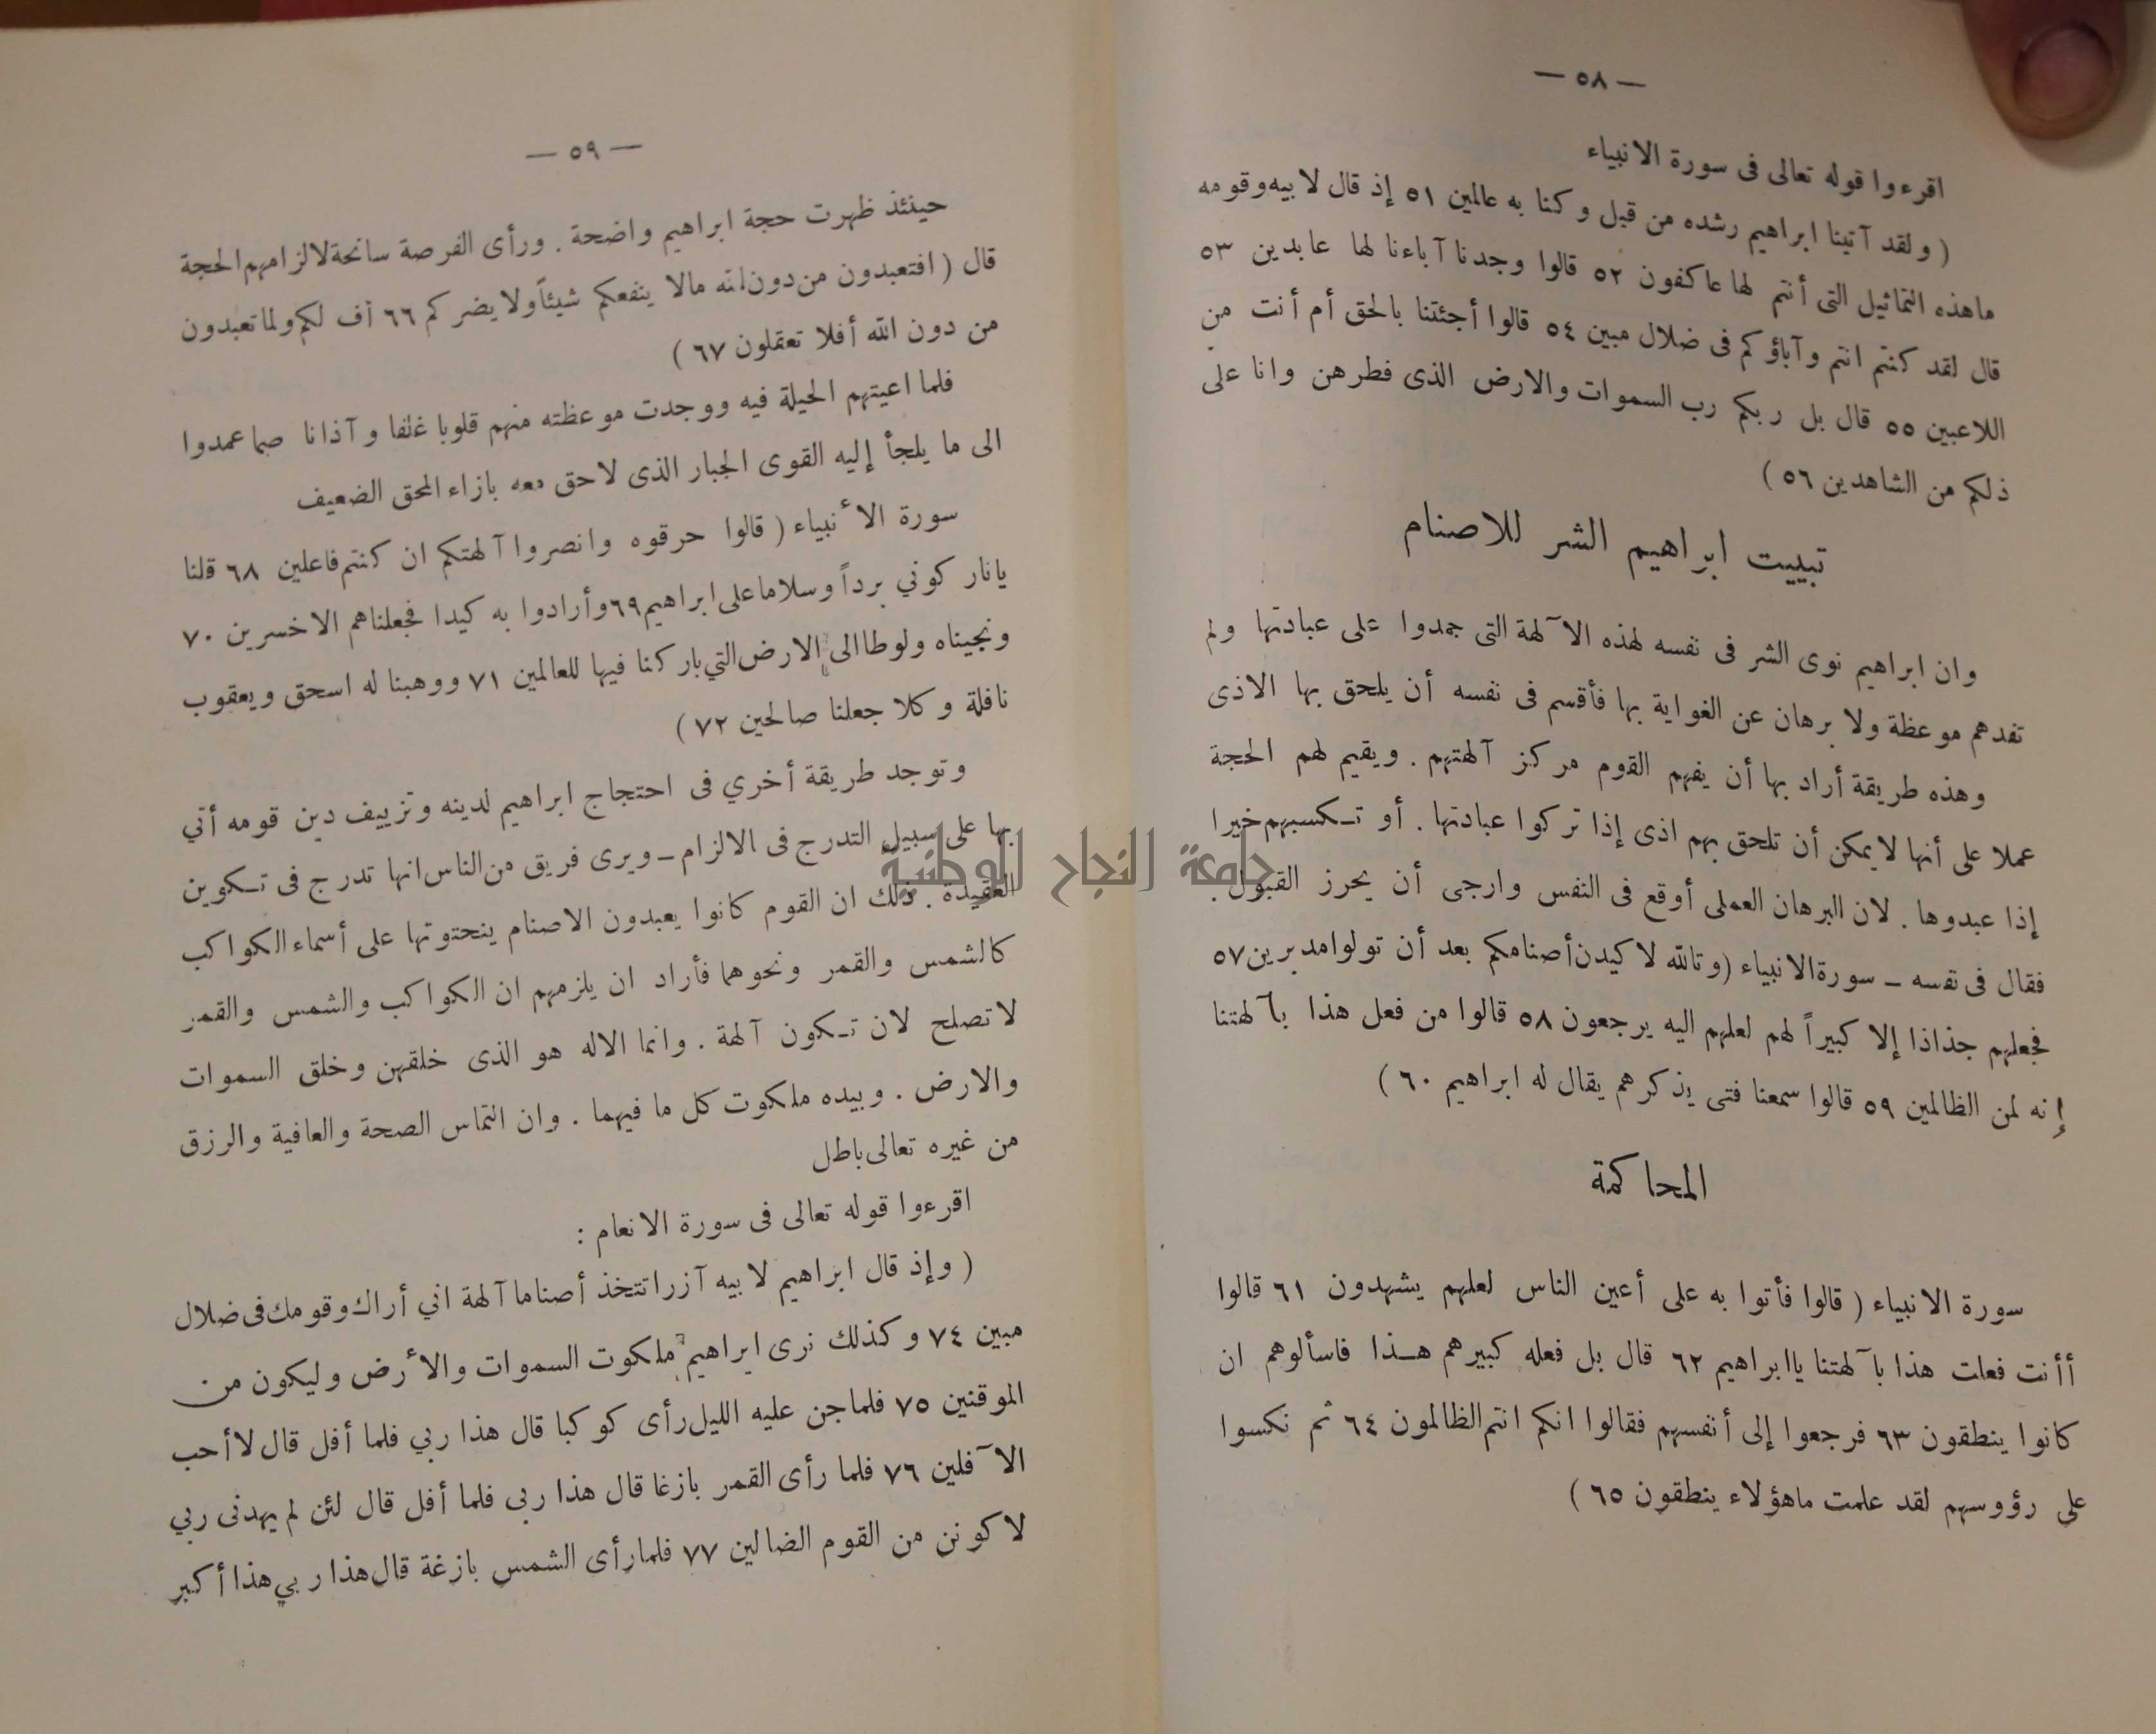 — ٥٨ —
اقرءوا قوله تعالى فى سورة الانبياء
( ولقد آتينا ابراهيم رشده من قبل وكنا به عالمين ٥١ إذ قال لابيه وقومه
ماهذه التماثيل التى أنتم لها عاكفون ٥٢ قالوا وجدنا آباءنا لها عابدين ٥٣
قال لقد كنتم انتم وآباؤكم فى ضلال مبين ٥٤ قالوا أجئتنا بالحق أم أنت من
اللاعبين ٥٥ قال بل ربكم رب السموات والارض الذى فطرهن وانا على
ذلكم من الشاهدين ٥٦ )
تبييت ابراهيم الشر للاصنام
وان ابراهيم نوى الشر فى نفسه لهذه الآلهة التى جمدوا على عبادتها ولم
تفدهم موعظة ولا برهان عن الغواية بها فأقسم فى نفسه أن يلحق بها الاذى
وهذه طريقة أراد بها أن يفهم القوم مركز آلهتهم . ويقيم لهم الحجة
عملا على أنها لا يمكن أن تلحق بهم اذى إذا تركوا عبادتها . أو تكسبهم خيرا
إذا عبدوها . لان البرهان العملى أوقع فى النفس وارجى أن يحرز القبول .
فقال فى نفسه – سورة الانبياء ( وتالله لاكيدن أصنامكم بعد أن تولوا مدبرين ٥٧
فجعلهم جذاذا إلا كبيراً لهم لعلهم اليه يرجعون ٥٨ قالوا من فعل هذا بآلهتنا
إنه لمن الظالمين ٥٩ قالوا سمعنا فتى يذكرهم يقال له ابراهيم ٦٠ )
المحاكمة
سورة الانبياء ( قالوا فأتوا به على أعين الناس لعلهم يشهدون ٦١ قالوا
أأنت فعلت هذا بآلهتنا ياابراهيم ٦٢ قال بل فعله كبيرهم هـذا فاسألوهم ان
كانوا ينطقون ٦٣ فرجعوا إلى أنفسهم فقالوا انكم انتم الظالمون ٦٤ ثم نكسوا
على رؤوسهم لقد علمت ماهؤلاء ينطقون ٦٥ )
— ٥٩ —
حينئذ ظهرت حجة ابراهيم واضحة . ورأى الفرصة سانحة لالزامهم الحجة
قال ( افتعبدون من دون الله مالا ينفعكم شيئاً ولا يضركم ٦٦ أف لكم ولما تعبدون
من دون الله أفلا تعقلون ٦٧ )
فلما اعيتهم الحيلة فيه ووجدت موعظته منهم قلوبا غلفا وآذانا صما عمدوا
الى ما يلجأ إليه القوى الجبار الذى لاحق معه بازاء المحق الضعيف
سورة الأنبياء ( قالوا حرقوه وانصروا آلهتكم ان كنتم فاعلين ٦٨ قلنا
يانار كوني برداً وسلاما على ابراهيم ٦٩ وأرادوا به كيدا فجعلناهم الاخسرين ٧٠
ونجيناه ولوطا الى الارض التي باركنا فيها للعالمين ٧١ ووهبنا له اسحق ويعقوب
نافلة وكلا جعلنا صالحين ٧٢ )
وتوجد طريقة أخري فى احتجاج ابراهيم لدينه وتزييف دين قومه أتي
بها على سبيل التدرج فى الالزام – ويرى فريق من الناس انها تدرج فى تكوين
العقيدة . ذلك ان القوم كانوا يعبدون الاصنام ينحتوتها على أسماء الكواكب
كالشمس والقمر ونحوهما فأراد ان يلزمهم ان الكواكب والشمس والقمر
لاتصلح لان تكون آلهة . وانما الاله هو الذى خلقهن وخلق السموات
والارض . وبيده ملكوت كل ما فيهما . وان التماس الصحة والعافية والرزق
من غيره تعالى باطل
اقرءوا قوله تعالى فى سورة الانعام :
( وإذ قال ابراهيم لابيه آزر اتتخذ أصناما آلهة اني أراك وقومك فى ضلال
مبين ٧٤ وكذلك نرى ابراهيم ملكوت السموات والأرض وليكون من
الموقنين ٧٥ فلما جن عليه الليل رأى كوكبا قال هذا ربي فلما أفل قال لا أحب
الآفلين ٧٦ فلما رأى القمر بازغا قال هذا ربى فلما أفل قال لئن لم يهدنى ربي
لاكونن من القوم الضالين ٧٧ فلما رأى الشمس بازغة قال هذا ربي هذا أكبر
جامعة النجاح الوطنية